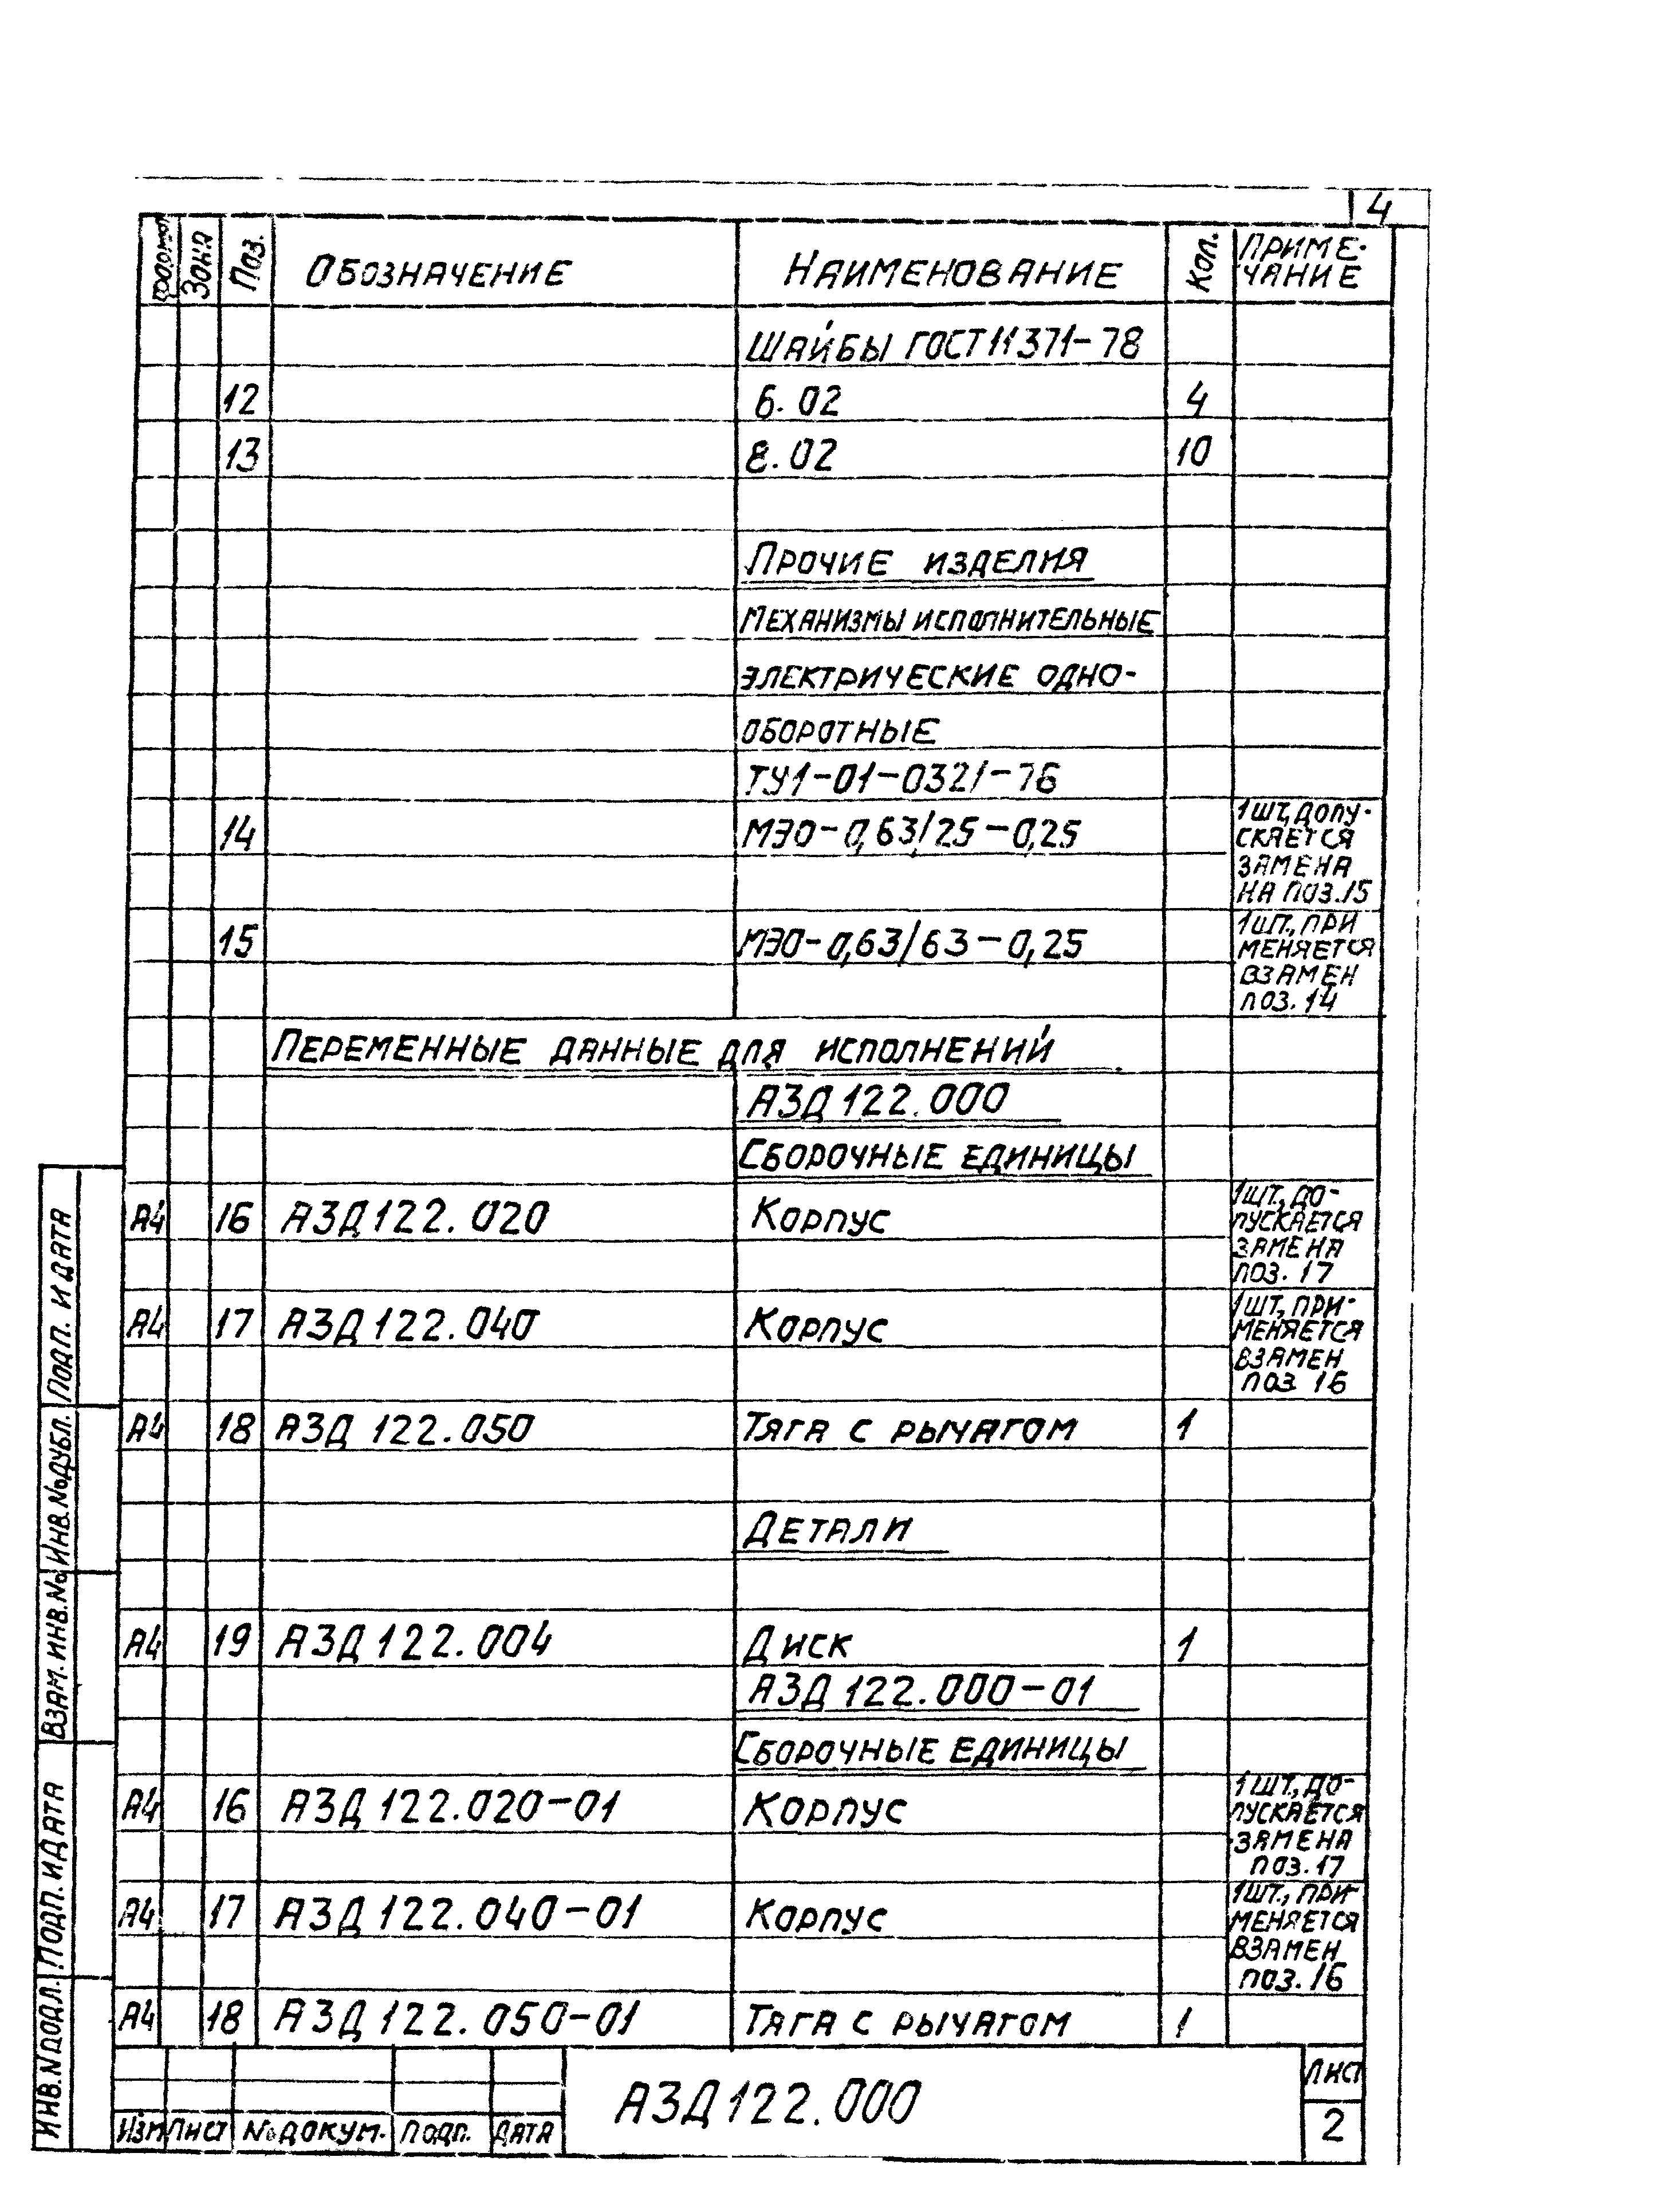 4
Формат Зона Поз. Обозначение Наименование Кол. Приме-
чание
Шайбы ГОСТ 11371-78
12 6.02 4
13 8.02 10
Прочие изделия
Механизмы исполнительные
электрические одно-
оборотные
ТУ1-01-0321-76
14 МЭО-0,63/25-0,25 1 шт, допу-
скается
замена
на поз.15
15 МЭО-0,63/63-0,25 1 шт., при
меняется
взамен
поз. 14
Переменные данные для исполнений
АЗД 122.000
Сборочные единицы
А4 16 АЗД 122.020 Корпус 1 шт., до-
пускается
замена
поз. 17
А4 17 АЗД 122.040 Корпус 1 шт, при-
меняется
взамен
поз 16
А4 18 АЗД 122.050 Тяга с рычагом 1
Детали
А4 19 АЗД 122.004 Диск 1
АЗД 122.000-01
Сборочные единицы
А4 16 АЗД 122.020-01 Корпус 1 шт., до-
пускается
замена
поз.17
А4 17 АЗД 122.040-01 Корпус 1 шт., при-
меняется
взамен
поз.16
А4 18 АЗД 122.050-01 Тяга с рычагом 1
Подп. и дата
Инв.№ дубл.
Взам. инв.№
Подп. и дата
Инв.№ подл.
Изм Лист № докум. Подп. Дата
АЗД 122.000
Лист
2